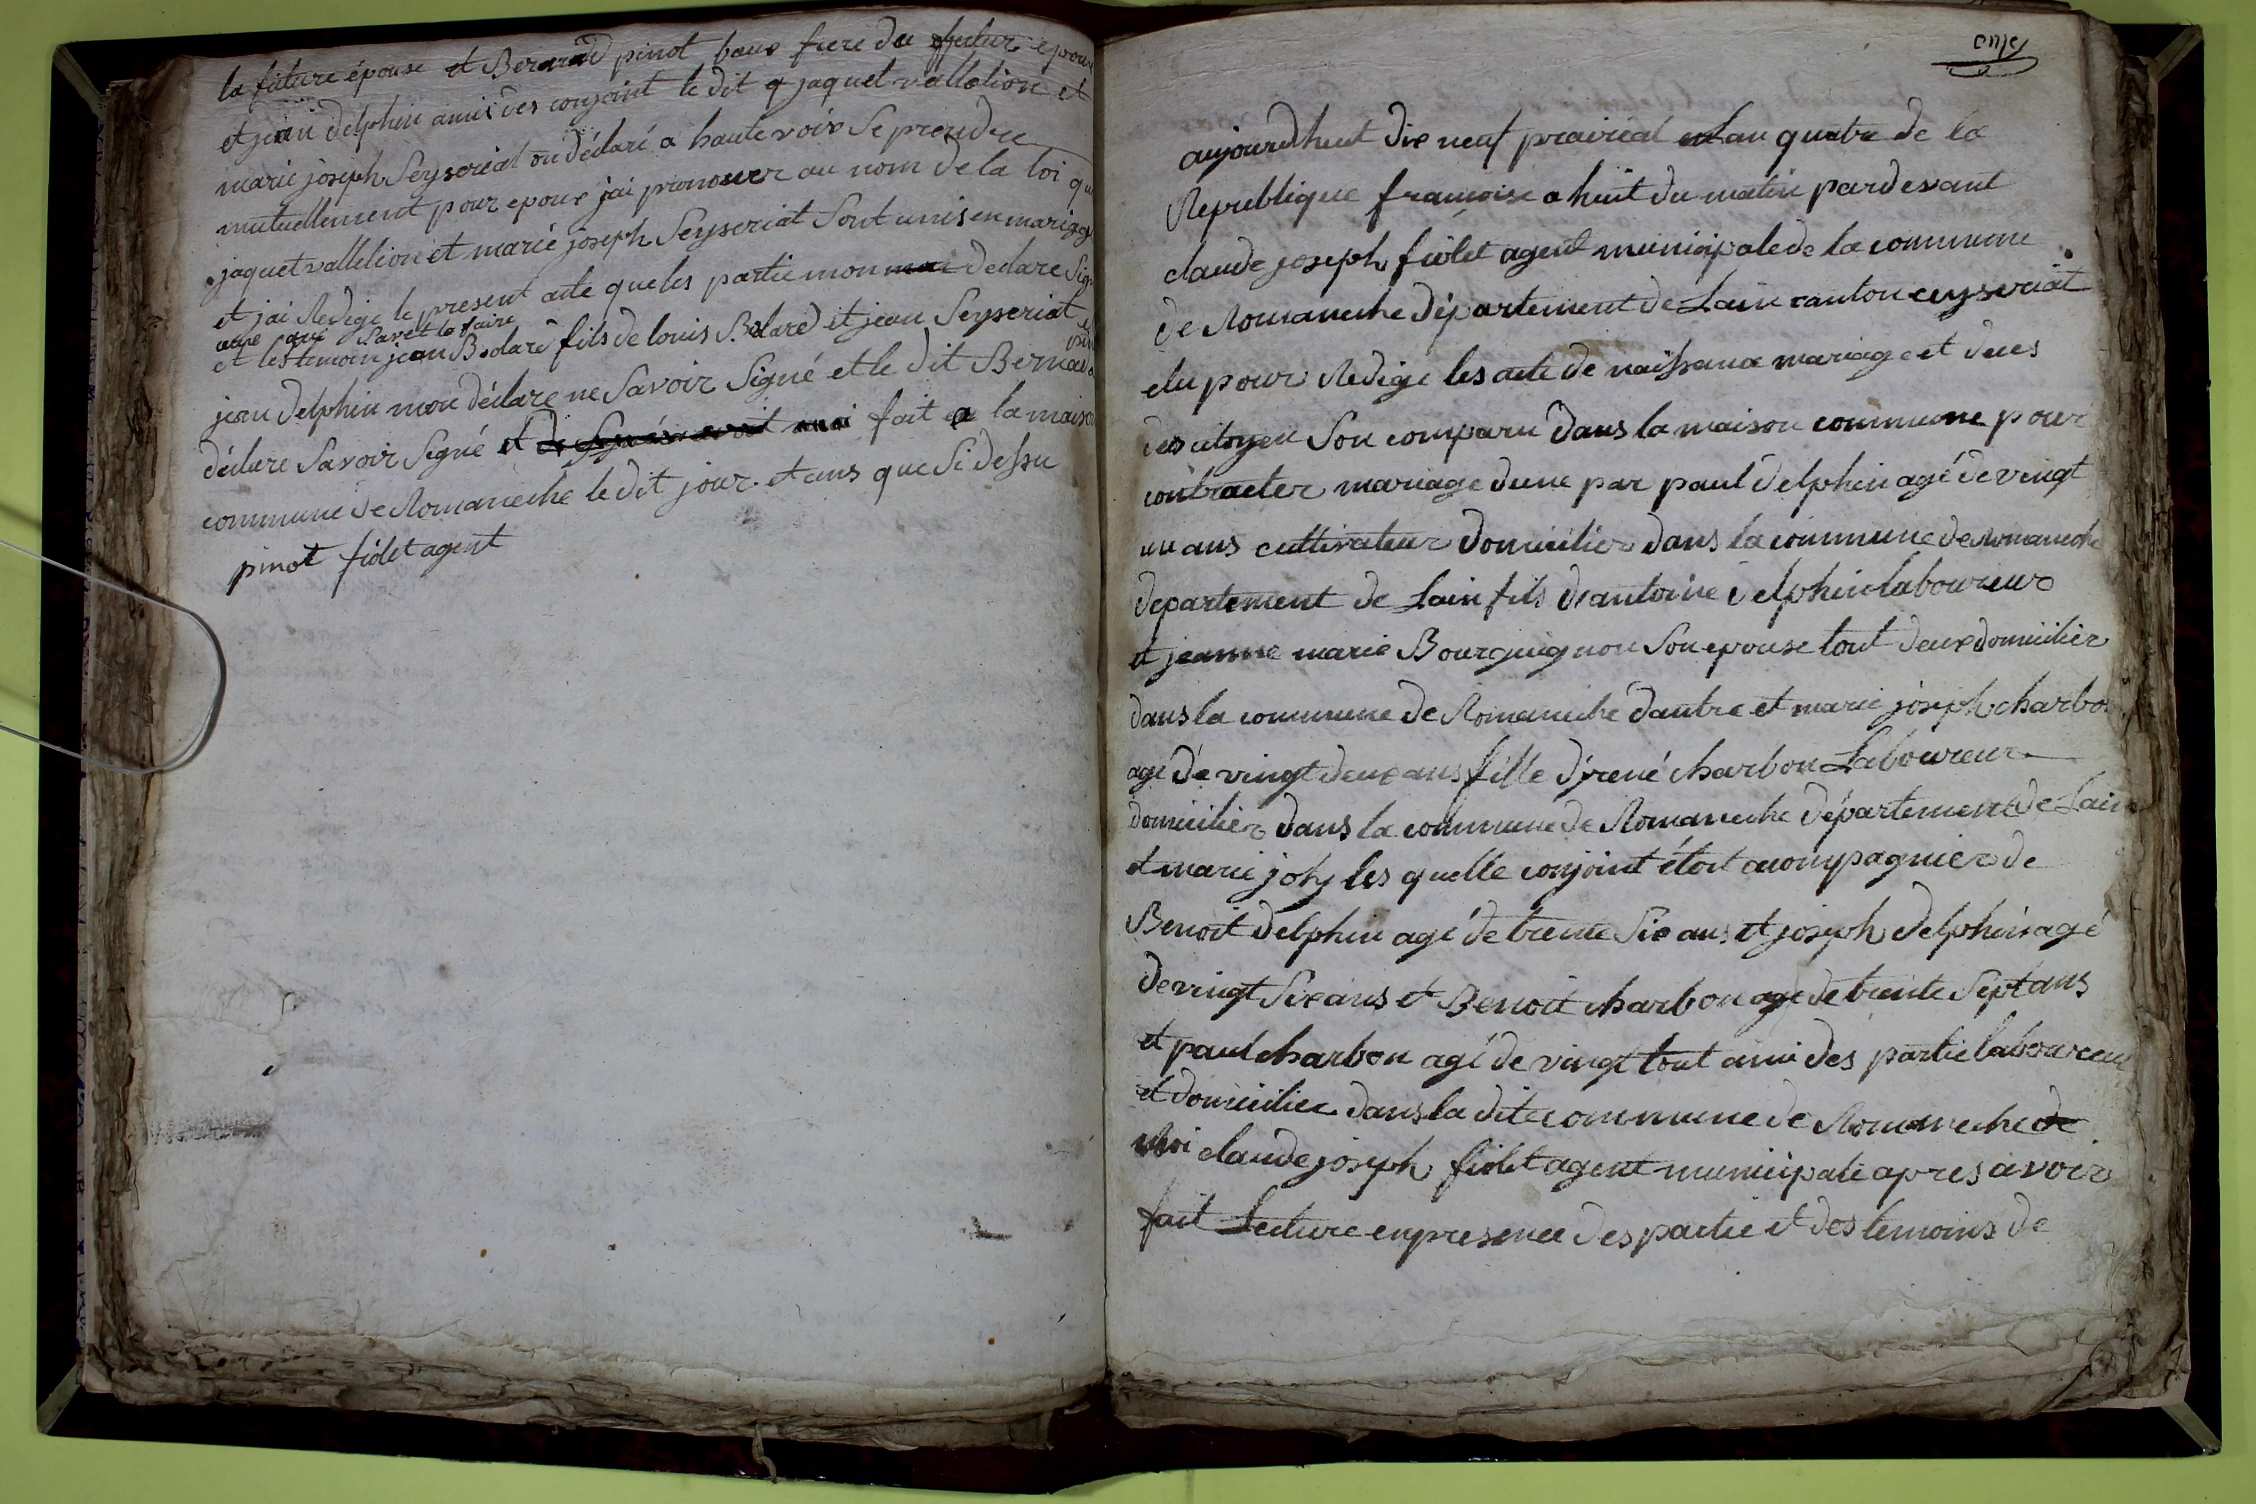 la future épouse et Berard pinot baux frere du futur epoux
et jean delphin amis des conjoint le dit jaquet vallelion et
marie joseph Seyseriat on déclaré a haute voix Se prendre
mutuellement pour epoux jai pronouer au nom de la loi que
jaquet vallelion et marie joseph Seyseriat Sont unis en mariage
et jai Redige le present acte que les partie mon declare Sig
Savet le faire
et les temoin jean Bolard fils de louis Bolard et jean Seyseriat et
jean delphin mon déclare ne Savoir Signé et le dit Bernard pin
déclare Savoir Signé et fait a la maison
commune de Romaneche le dit jour et ans que Si dessu
pinot fiolet agent
onze
aujourdhuit dix neuf prairéal lan quatre de la
Republique françoise a huit du matin pardevant
claude joseph fiolet agent municipale de la commune
de Romaneche département de Lain canton ceyseriat
elu pour Redige les acte de naissance mariage et deces
des citoyen Son comparu dans la maison commune pour
contracter mariage dune par paul delphin agé de vingt
un ans cultivateur domicilier dans la commune de Romaneche
departement de Lain fils dantoine delphin laboureur
et jeanne marie Bourguignon Son epouse tout deux domicilier
dans la commune de Romaneche dautre et marie joseph charbon
agé de vingt deux ans fille d'rené charbon Laboureur
domicilier dans la commune de Romaneche département de Lain
et marie joly les quelle conjoint étoit acompagnier de
Benoit delphin agé de trente Six ans et joseph delphin agé
de vingt Six ans et Benoit charbon agé de trente Sept ans
et paul charbon agé de vingt tout ami des partie laboureur
et domicilier dans la dite commune de Romaneche de
Moi claude joseph fiolet agent municipale apres avoir
fait Lecture en presence des partie et des temoins de